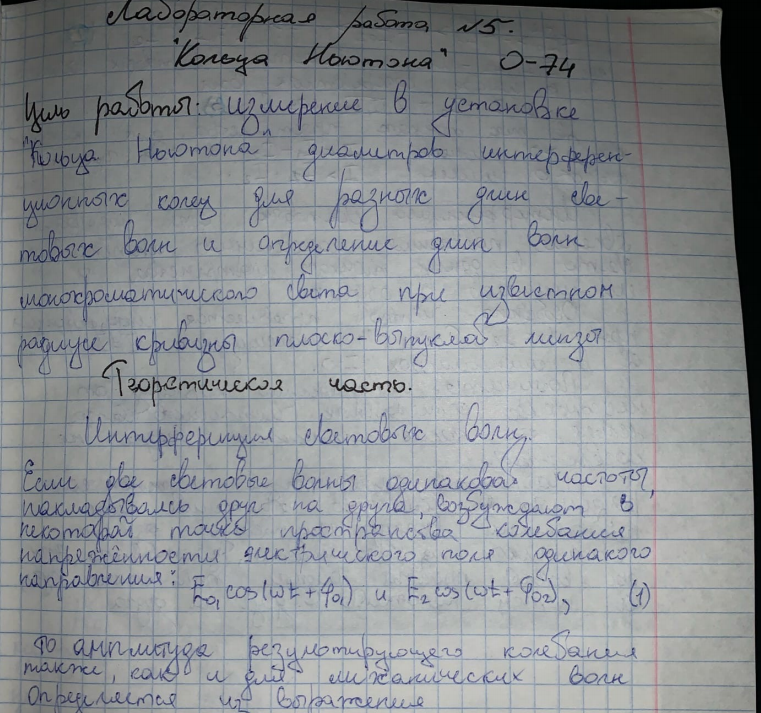 Лабораторная работа №5.
"Кольца Ньютона" О-74
Цель работы: измерение в установке
"Кольца Ньютона" диаметров интерферен-
ционных колец для разных длин све-
товых волн и определение длин волн
монохроматического света при известном
радиусе кривизны плоско-выпуклой линзы
Теоретическая часть.
Интерференция световых волн.
Если две световые волны одинаковой частоты,
накладываясь друг на друга, возбуждают в
некоторой точке пространства колебания
напряжённости электрического поля одинакого
направления: E₀₁ cos(ωt + φ₀₁) и E₂ cos(ωt + φ₀₂), (1)
то амплитуда результирующего колебания
также, как и для механических волн
определяется из выражения